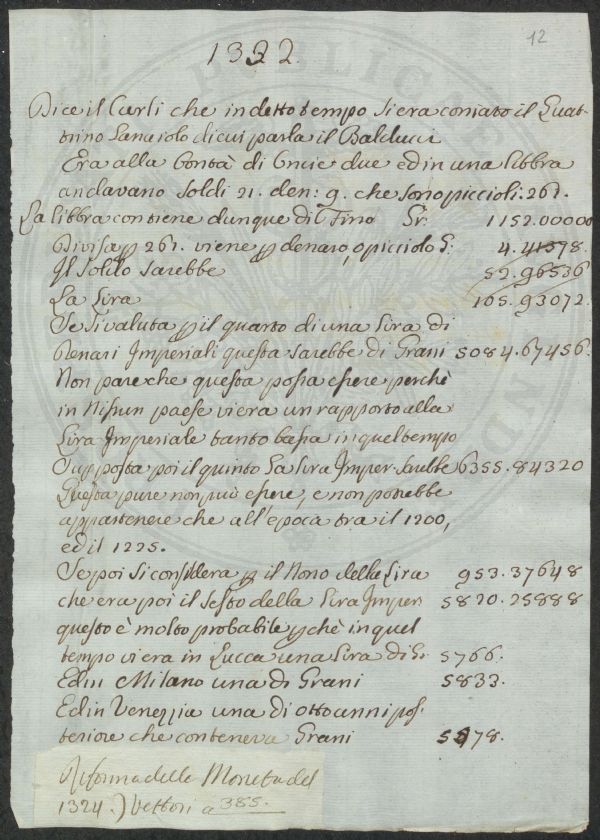 12
1322
Dice il Carli che in detto tempo si era coniato il Quat-
trino Lanaiolo di cui parla il Balducci
Era alla Bontà di Oncie due ed in una libbra
andavano Soldi 21. den: 9. che sono piccioli. 261.
La libbra contiene dunque di Fino Gr. 1152.00000
Divisa p 261. viene p denaro, o picciolo G: 4.41378.
Il Soldo sarebbe 52.96536
La Lira 105.93072.
Se si valuta p il quarto di una Lira di
Denari Imperiali questa sarebbe di Grani 5084.67456.
Non pare che questa possa essere perchè
in Nissun paese vi era un rapporto alla
Lira Imperiale tanto bassa in quel tempo
Supposta poi il quinto La Lira Imper. sarebbe 6355.84320
Questa pure non può essere, e non potrebbe
appartenere che all'epoca tra il 1200,
ed il 1225.
Se poi si considera p il Nono della Lira 953.37648
che era poi il Sesto della Lira Imper 5820.25888
questo è molto probabile pchè in quel
tempo vi era in Lucca una Lira di Gr. 5766.
Ed in Milano una di Grani 5833.
Ed in Venezzia una di otto anni pos-
teriore che conteneva Grani 5978.
Riforma delle Monete del
1324. Vettori a 385.